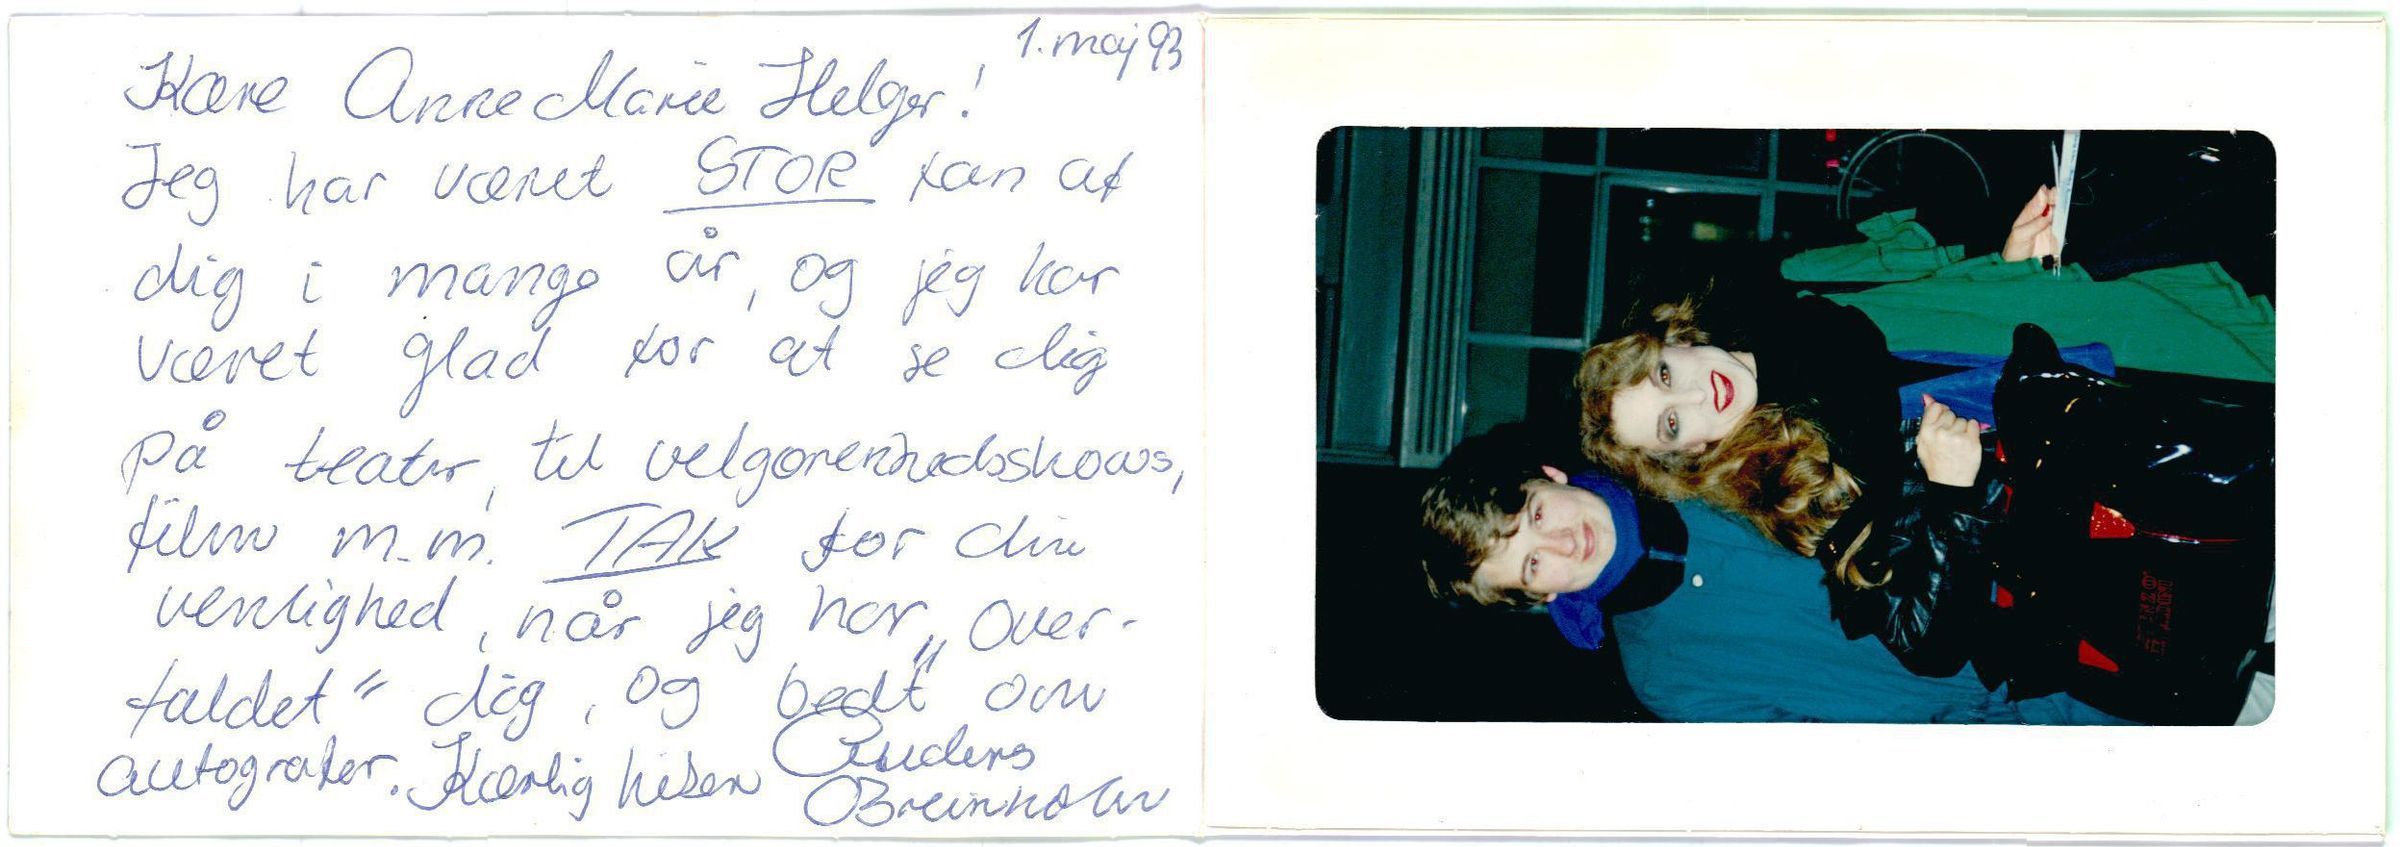 1. maj 93
Kære Anne Marie Helger!
Jeg har været STOR fan af
dig i mange år, og jeg har
været glad for at se dig
på teater, til velgørenhedsshows,
film m.m. TAK for din
venlighed, når jeg har „over-
faldet“ dig, og bedt om
autografer. Kærlig hilsen Anders
Breinholm